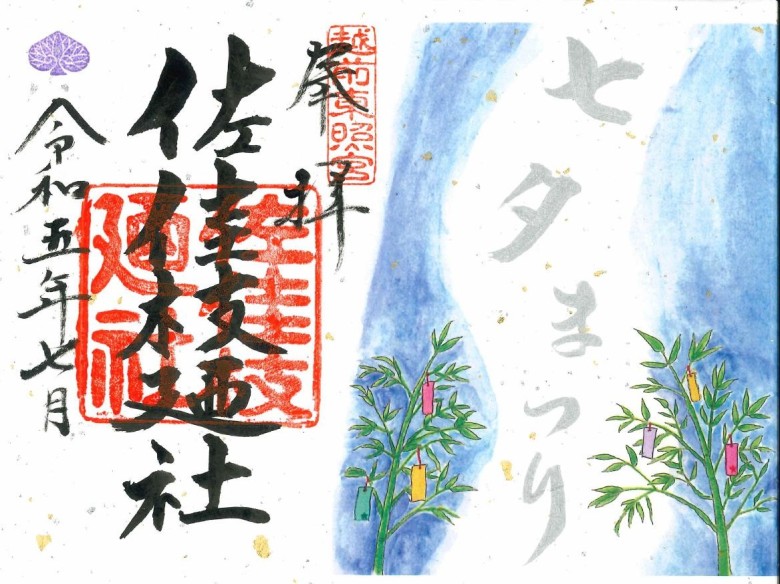 七夕まつり
越前東照宮
奉拝
佐佳枝廼社
佐佳枝
廼社
令和五年七月